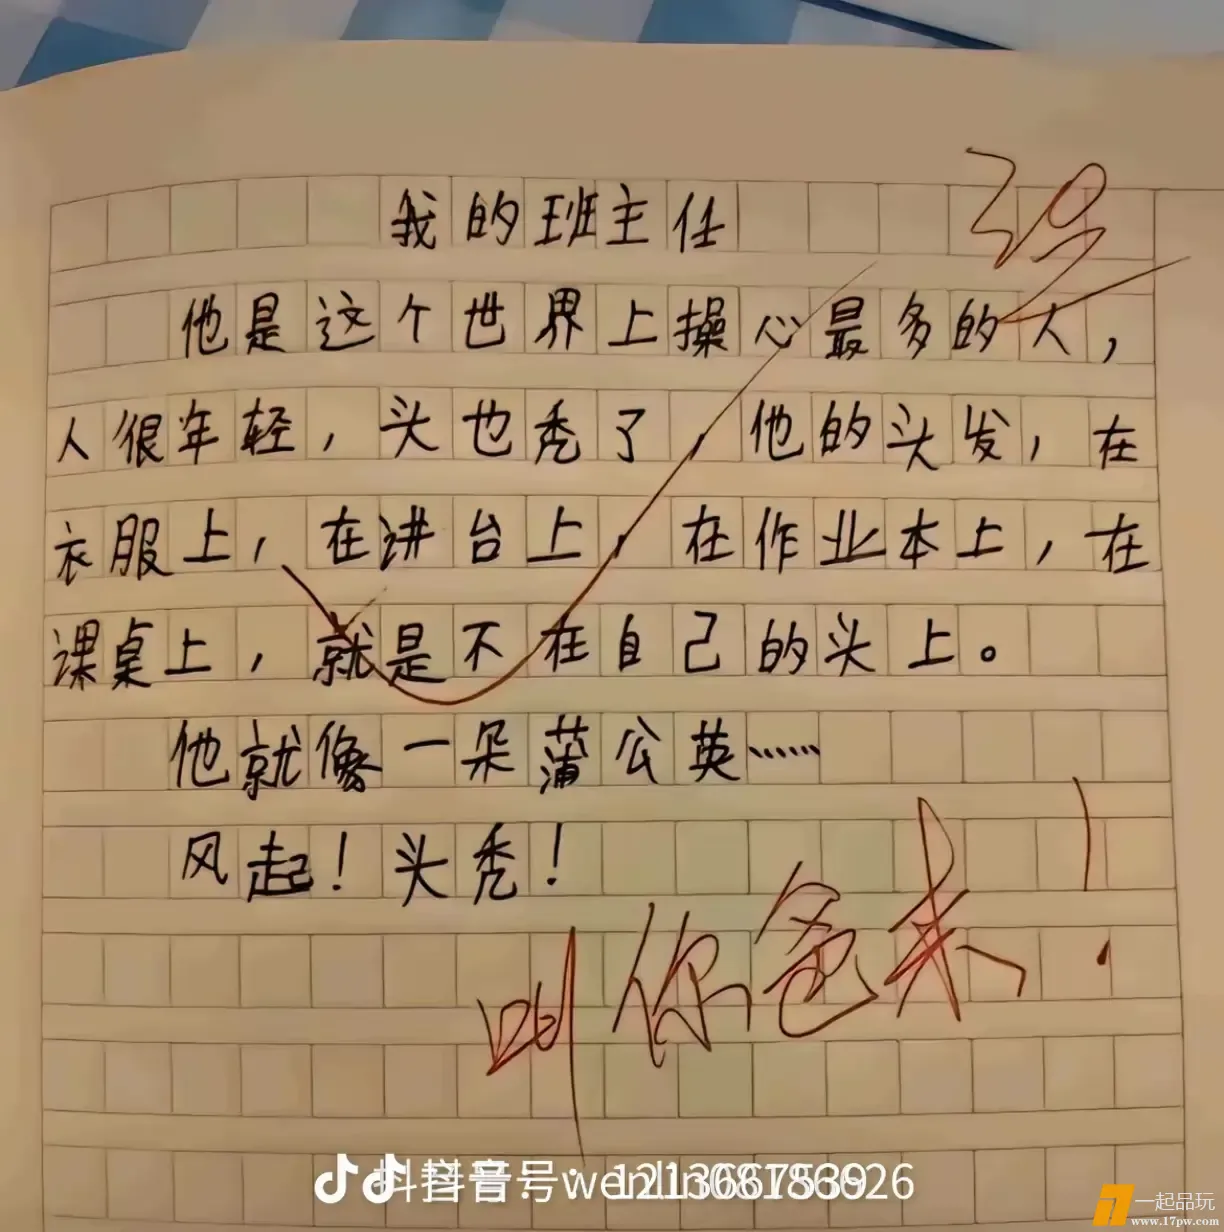 我的班主任
他是这个世界上操心最多的人,
人很年轻,头也秃了,他的头发,在
衣服上,在讲台上,在作业本上,在
课桌上,就是不在自己的头上。
他就像一朵蒲公英……
风起!头秃!
叫你爸来!
一起品玩
www.17pw.com